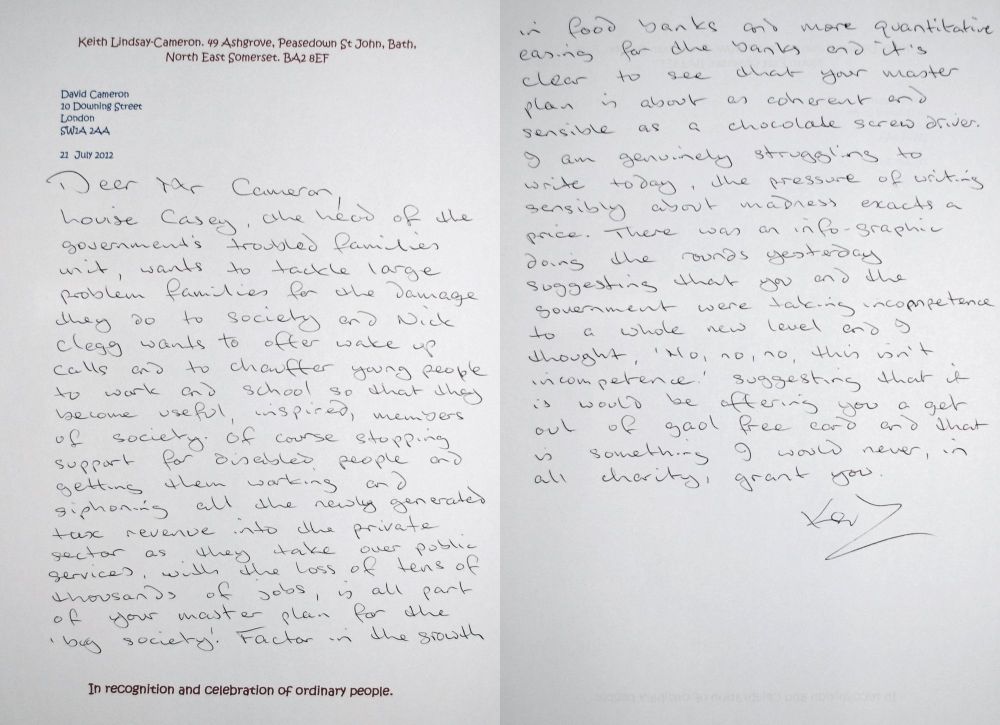 Keith Lindsay-Cameron. 49 Ashgrove, Peasedown St John, Bath,
North East Somerset. BA2 8EF
David Cameron
10 Downing Street
London
SW1A 2AA
21 July 2012
Dear Mr Cameron,
Louise Casey, the head of the
government's troubled families
unit, wants to tackle large
problem families for the damage
they do to society and Nick
Clegg wants to offer wake up
calls and to chauffer young people
to work and school so that they
become useful, inspired, members
of society. Of course stopping
support for disabled people and
getting them working and
siphoning all the newly generated
tax revenue into the private
sector as they take over public
services, with the loss of tens of
thousands of jobs, is all part
of your master plan for the
'big society'. Factor in the growth
In recognition and celebration of ordinary people.
in food banks and more quantitative
easing for the banks and it's
clear to see that your master
plan is about as coherent and
sensible as a chocolate screw driver.
I am genuinely struggling to
write today, the pressure of writing
sensibly about madness exacts a
price. There was an info-graphic
doing the rounds yesterday
suggesting that you and the
government were taking incompetence
to a whole new level and I
thought, 'No, no, no, this isn't
incompetence.' suggesting that it
is would be offering you a get
out of gaol free card and that
is something I would never, in
all charity, grant you.